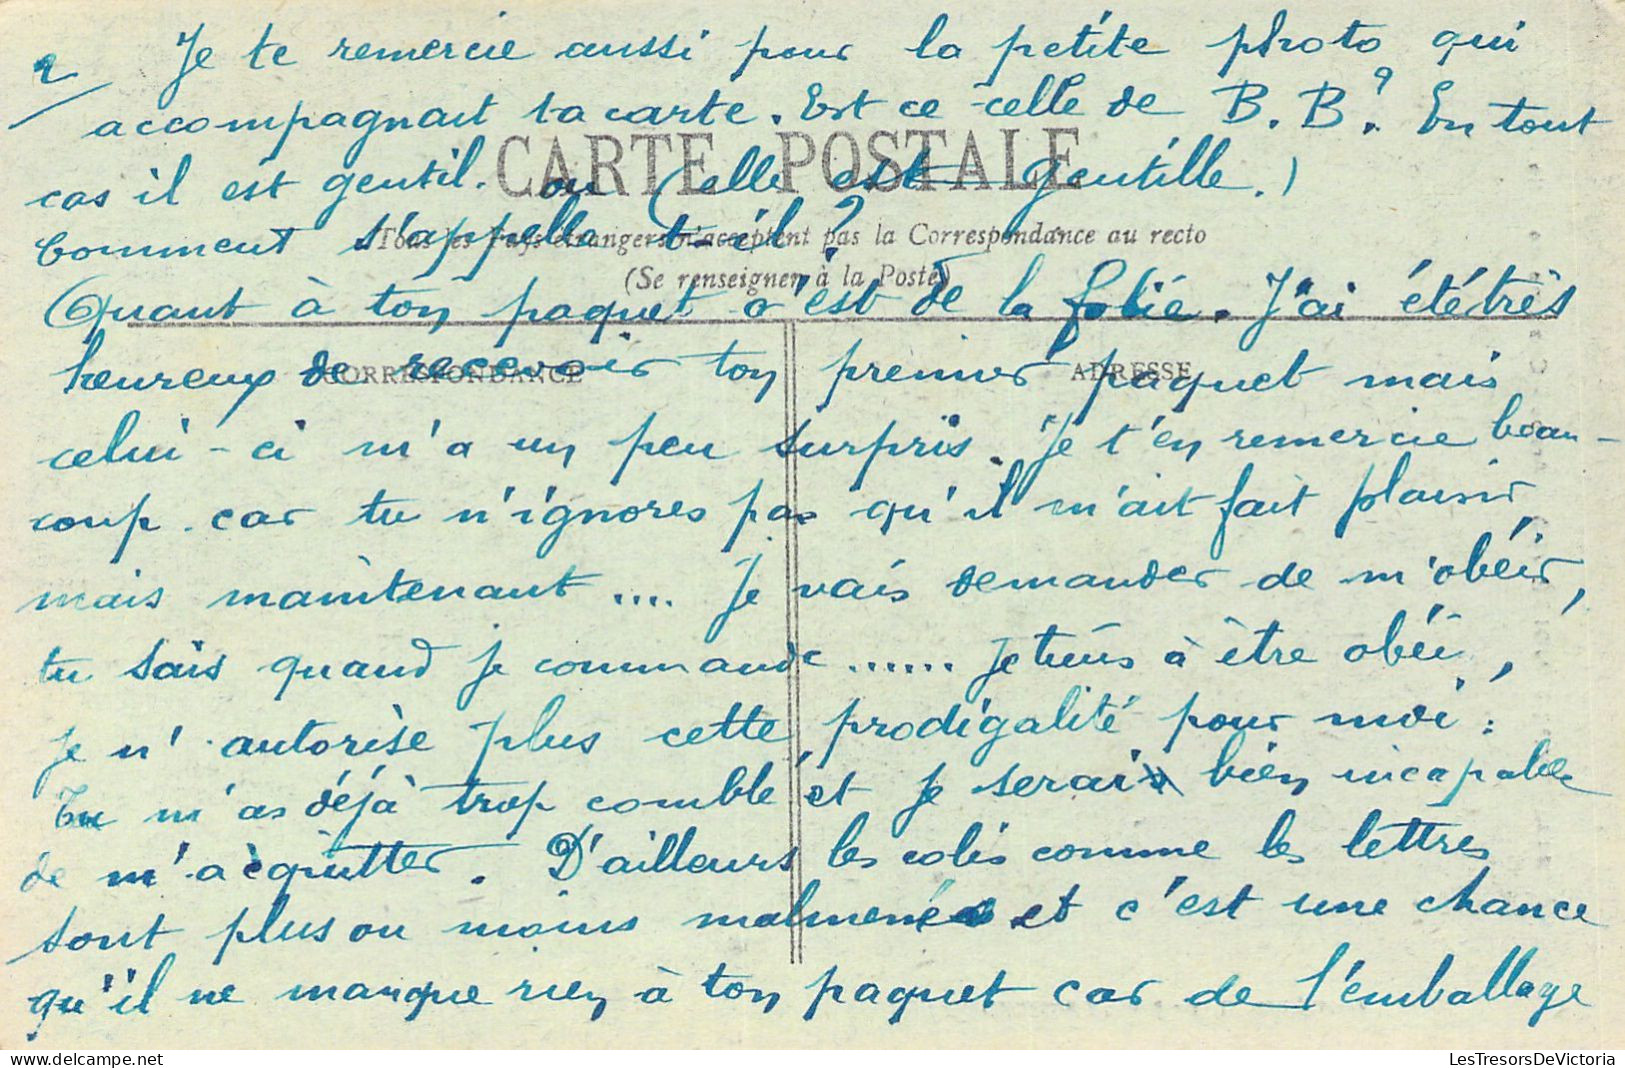 2 Je te remercie aussi pour la petite photo qui
accompagnait ta carte. Est ce celle de B.B.? En tout
cas il est gentil. ou (elle est gentille.)
CARTE POSTALE
Comment s'appelle t-il?
Tous les Pays étrangers n'acceptent pas la Correspondance au recto
(Se renseigner à la Poste)
Quant à ton paquet c'est de la folie. J'ai été très
heureux de recevoir ton premier paquet mais
CORRESPONDANCE
ADRESSE
celui-ci m'a un peu surpris. Je t'en remercie beau-
coup car tu n'ignores pas qu'il m'ait fait plaisir
mais maintenant .... Je vais demander de m'obéir,
tu sais quand je commande ...... Je tiens à être obéi,
je n'autorise plus cette prodigalité pour moi :
Tu m'as déjà trop comblé et je serai bien incapable
de m'acquitter. D'ailleurs les colis comme les lettres
sont plus ou moins malmenés et c'est une chance
qu'il ne manque rien à ton paquet car de l'emballage
LesTresorsDeVictoria